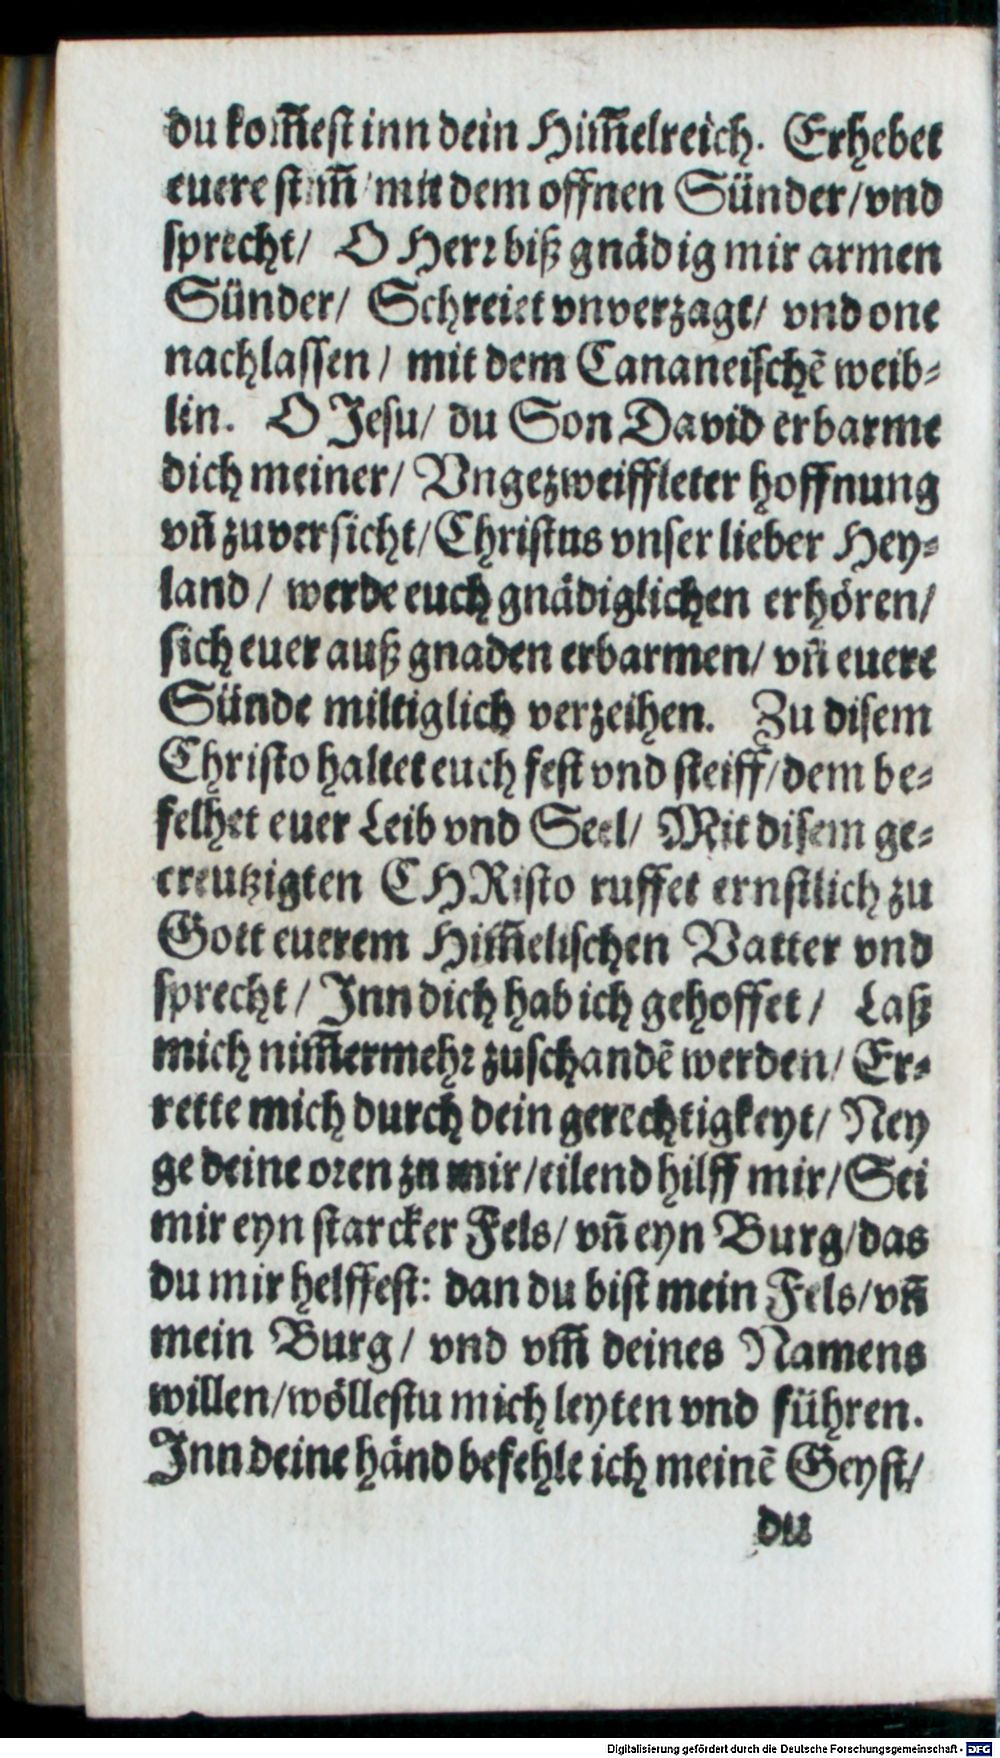 du kom̃est inn dein Him̃elreich. Erhebet
euere stim̃ mit dem offnen Sünder/ vnd
sprecht/ O Herr biß gnädig mir armen
Sünder/ Schreiet vnverzagt/ vnd one
nachlassen/ mit dem Cananeischẽ weib-
lin. O Jesu/ du Son David erbarme
dich meiner/ Vngezweiffleter hoffnung
vñ zuversicht/ Christus vnser lieber Hey-
land/ werde euch gnädiglichen erhören/
sich euer auß gnaden erbarmen/ vñ euere
Sünde miltiglich verzeihen. Zu disem
Christo haltet euch fest vnd steiff/ dem be-
felhet euer Leib vnd Seel/ Mit disem ge-
creutzigten CHRisto ruffet ernstlich zu
Gott euerem Him̃elischen Vatter vnd
sprecht/ Inn dich hab ich gehoffet/ Laß
mich nim̃ermehr zuschandẽ werden/ Er-
rette mich durch dein gerechtigkeyt/ Ney
ge deine oren zu mir/ eilend hilff mir/ Sei
mir eyn starcker Fels/ vñ eyn Burg/ das
du mir helffest: dan du bist mein Fels/ vñ
mein Burg/ vnd vm̃ deines Namens
willen/ wöllestu mich leyten vnd führen.
Inn deine händ befehle ich meinẽ Geyst/
du
Digitalisierung gefördert durch die Deutsche Forschungsgemeinschaft - DFG